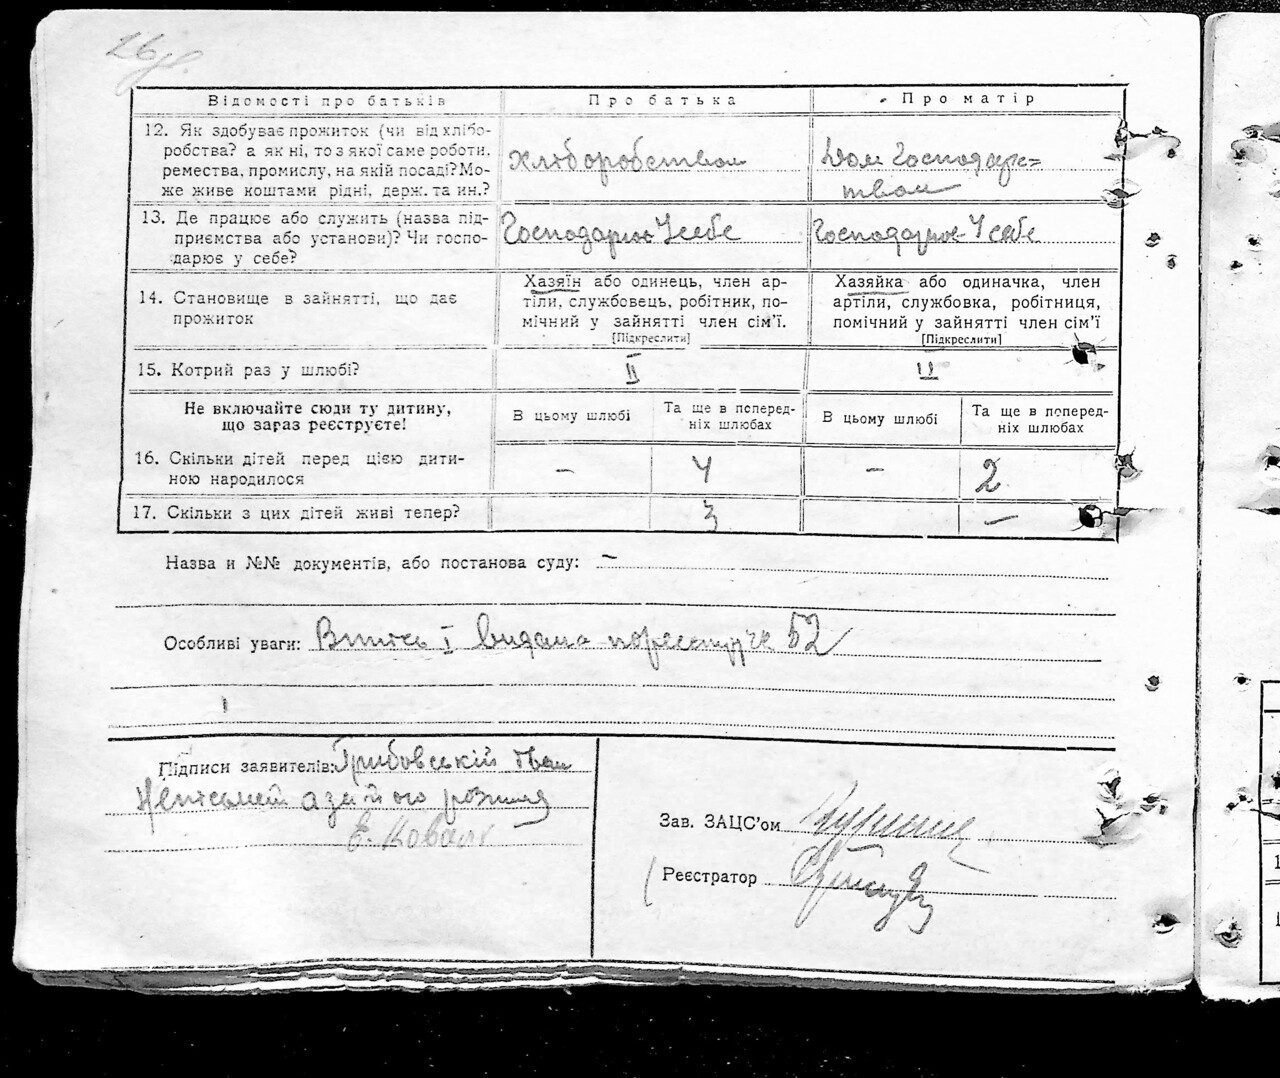 26
Відомості про батьків Про батька Про матір
12. Як здобуває прожиток (чи від хлібо- хліборобством Дом Господарс=
робства? а як ні, то з якої саме роботи. твом
ремества, промислу, на якій посаді? Мо-
же живе коштами рідні, держ. та ин.?
13. Де працює або служить (назва під- Господарює У себе Господарює У себе
приємства або установи)? Чи госпо-
дарює у себе?
14. Становище в зайнятті, що дає Хазяїн або одинець, член ар- Хазяйка або одиначка, член
прожиток тіли, службовець, робітник, по- артіли, службовка, робітниця,
мічний у зайнятті член сім'ї. помічний у зайнятті член сім'ї
[Підкреслити] [Підкреслити]
15. Котрий раз у шлюбі? II II
Не включайте сюди ту дитину, В цьому шлюбі Та ще в поперед- В цьому шлюбі Та ще в поперед-
що зараз реєструєте! ніх шлюбах ніх шлюбах
16. Скільки дітей перед цією дити- – 4 – 2
ною народилося
17. Скільки з цих дітей живі тепер? 3 –
Назва и №№ документів, або постанова суду: –
Особливі уваги: Витсь I видана 52
Підписи заявителів: Грибовській Іван
а за його
Е. Коваль
Зав. ЗАЦС'ом
Реєстратор